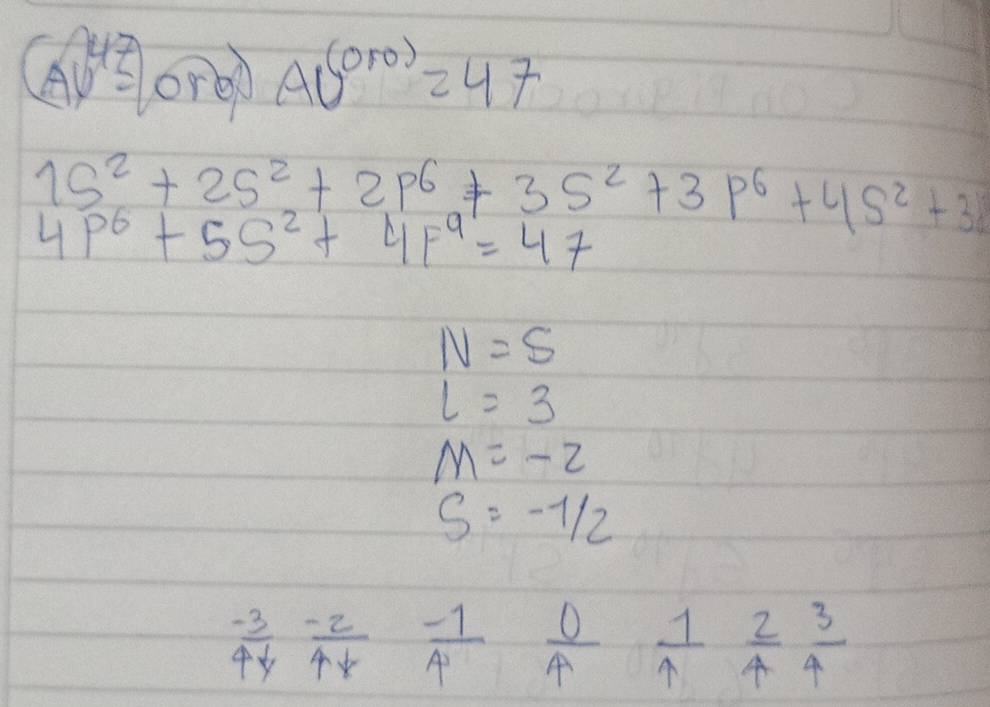 (AU⁴⁷=) (oro) AU⁽ᵒʳᵒ⁾ = 47
1S² + 2S² + 2P⁶ + 3S² + 3P⁶ + 4S² + 3d
4P⁶ + 5S² + 4F⁹ = 47
N = 5
L = 3
M = -2
S = -1/2
-3 -2 -1 0 1 2 3
↑↓ ↑↓ ↑ ↑ ↑ ↑ ↑